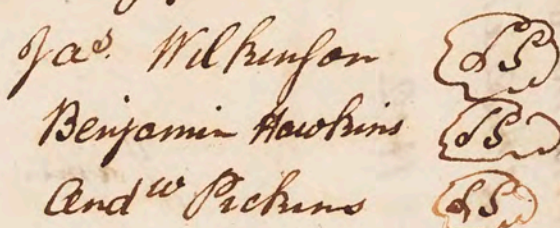 Jas. Wilkinson LS
Benjamin Hawkins LS
Andw Pickins LS